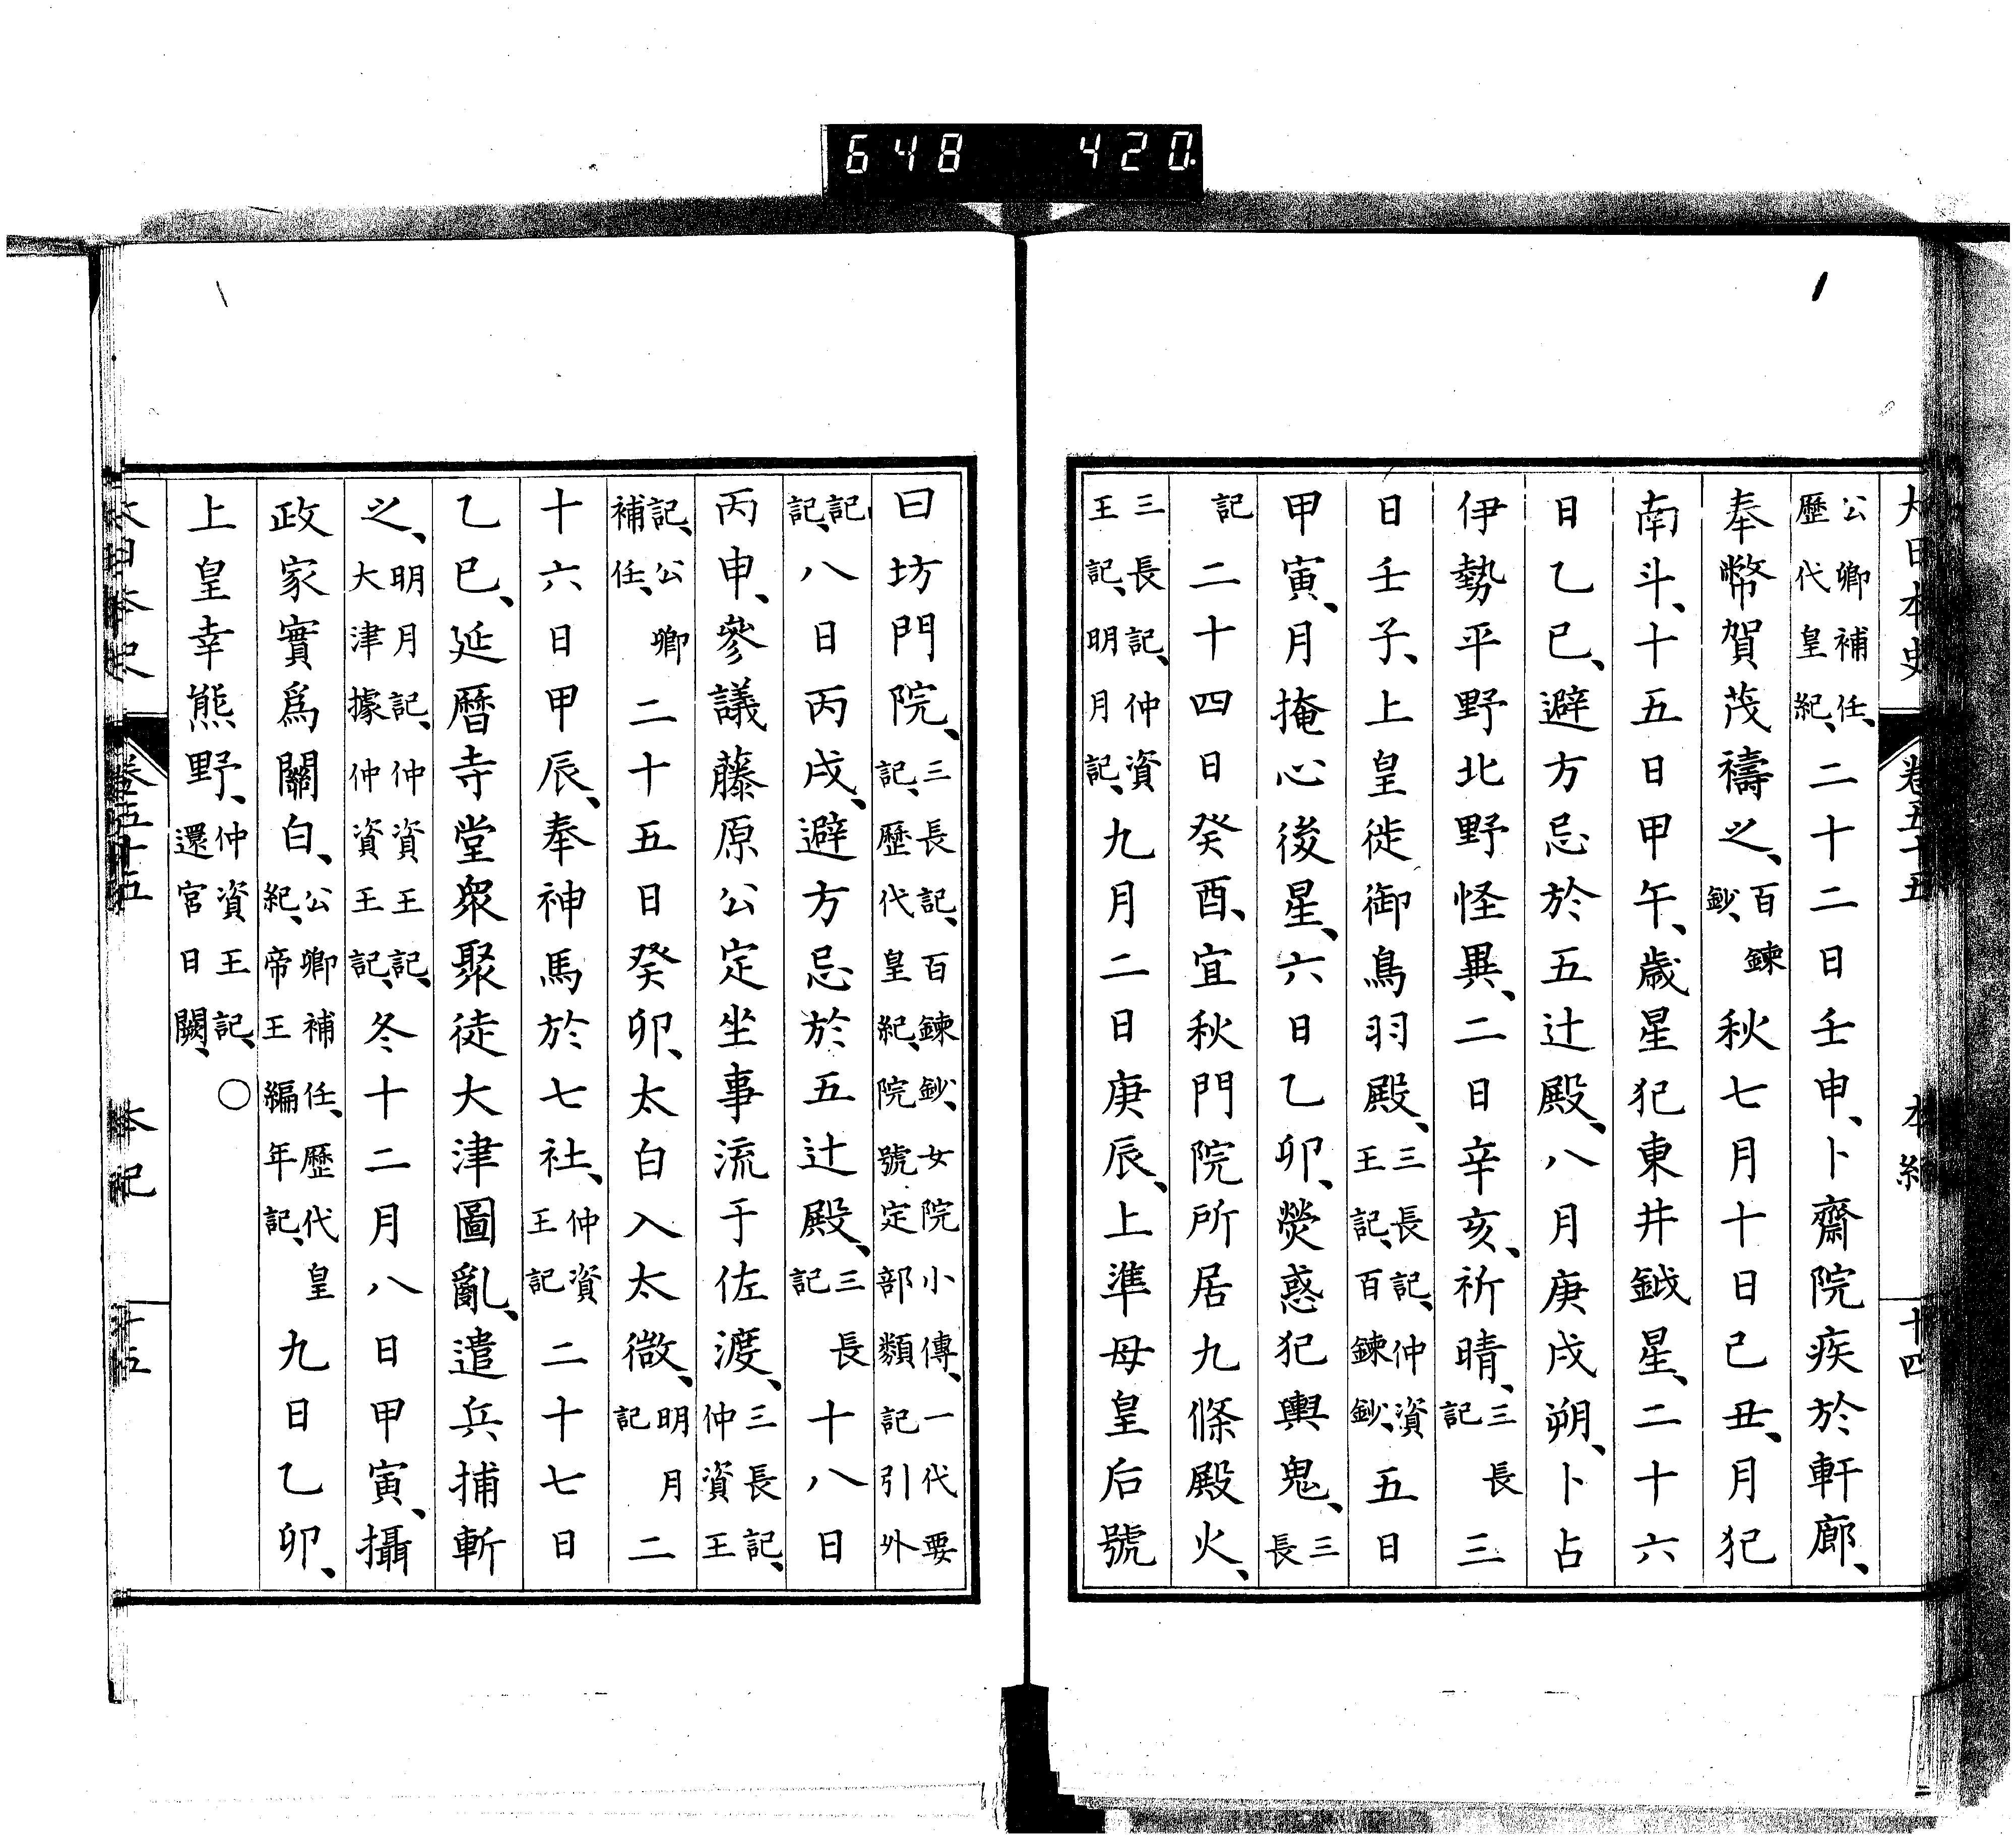 648 420
大日本史 卷五十五 本紀 十四
公卿補任、歷代皇紀、二十二日壬申、卜齋院疾於軒廊、
奉幣賀茂禱之、百鍊鈔、秋七月十日己丑、月犯
南斗、十五日甲午、歲星犯東井鉞星、二十六
日乙巳、避方忌於五辻殿、八月庚戌朔、卜占
伊勢平野北野怪異、二日辛亥、祈晴、三長記三
日壬子、上皇徙御鳥羽殿、三長記、仲資王記、百鍊鈔、五日
甲寅、月掩心後星、六日乙卯、熒惑犯輿鬼、三長
記二十四日癸酉、宜秋門院所居九條殿火、
三長記、仲資王記、明月記、九月二日庚辰、上準母皇后號
曰坊門院、三長記、百鍊鈔、女院小傳、一代要記、歷代皇紀、院號定部類記引外
記記、八日丙戌、避方忌於五辻殿、三長記十八日
丙申、參議藤原公定坐事流于佐渡、三長記、仲資王
記、公卿補任、二十五日癸卯、太白入太微、明月記二
十六日甲辰、奉神馬於七社、仲資王記二十七日
乙巳、延曆寺堂衆聚徒大津圖亂、遣兵捕斬
之、明月記、仲資王記、大津據仲資王記、冬十二月八日甲寅、攝
政家實爲關白、公卿補任、歷代皇紀、帝王編年記、九日乙卯、
上皇幸熊野、仲資王記、還宮日闕、○
大日本史 卷五十五 本紀 十五